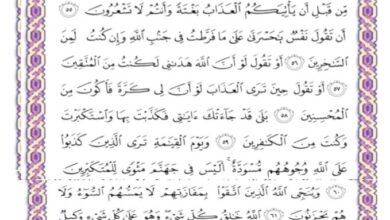 مِّن قَبْلِ أَن يَأْتِيَكُمُ ٱلْعَذَابُ بَغْتَةً وَأَنتُمْ لَا تَشْعُرُونَ ٥٥
أَن تَقُولَ نَفْسٌ يَٰحَسْرَتَىٰ عَلَىٰ مَا فَرَّطتُ فِى جَنۢبِ ٱللَّهِ وَإِن كُنتُ لَمِنَ
ٱلسَّٰخِرِينَ ٥٦ أَوْ تَقُولَ لَوْ أَنَّ ٱللَّهَ هَدَىٰنِى لَكُنتُ مِنَ ٱلْمُتَّقِينَ
٥٧ أَوْ تَقُولَ حِينَ تَرَى ٱلْعَذَابَ لَوْ أَنَّ لِى كَرَّةً فَأَكُونَ مِنَ
ٱلْمُحْسِنِينَ ٥٨ بَلَىٰ قَدْ جَآءَتْكَ ءَايَٰتِى فَكَذَّبْتَ بِهَا وَٱسْتَكْبَرْتَ
وَكُنتَ مِنَ ٱلْكَٰفِرِينَ ٥٩ وَيَوْمَ ٱلْقِيَٰمَةِ تَرَى ٱلَّذِينَ كَذَبُوا۟
عَلَى ٱللَّهِ وُجُوهُهُم مُّسْوَدَّةٌ أَلَيْسَ فِى جَهَنَّمَ مَثْوًى لِّلْمُتَكَبِّرِينَ
٦٠ وَيُنَجِّى ٱللَّهُ ٱلَّذِينَ ٱتَّقَوْا۟ بِمَفَازَتِهِمْ لَا يَمَسُّهُمُ ٱلسُّوٓءُ وَلَا
هُمْ يَحْزَنُونَ ٦١ ٱللَّهُ خَٰلِقُ كُلِّ شَىْءٍ وَهُوَ عَلَىٰ كُلِّ شَىْءٍ وَكِيلٌ